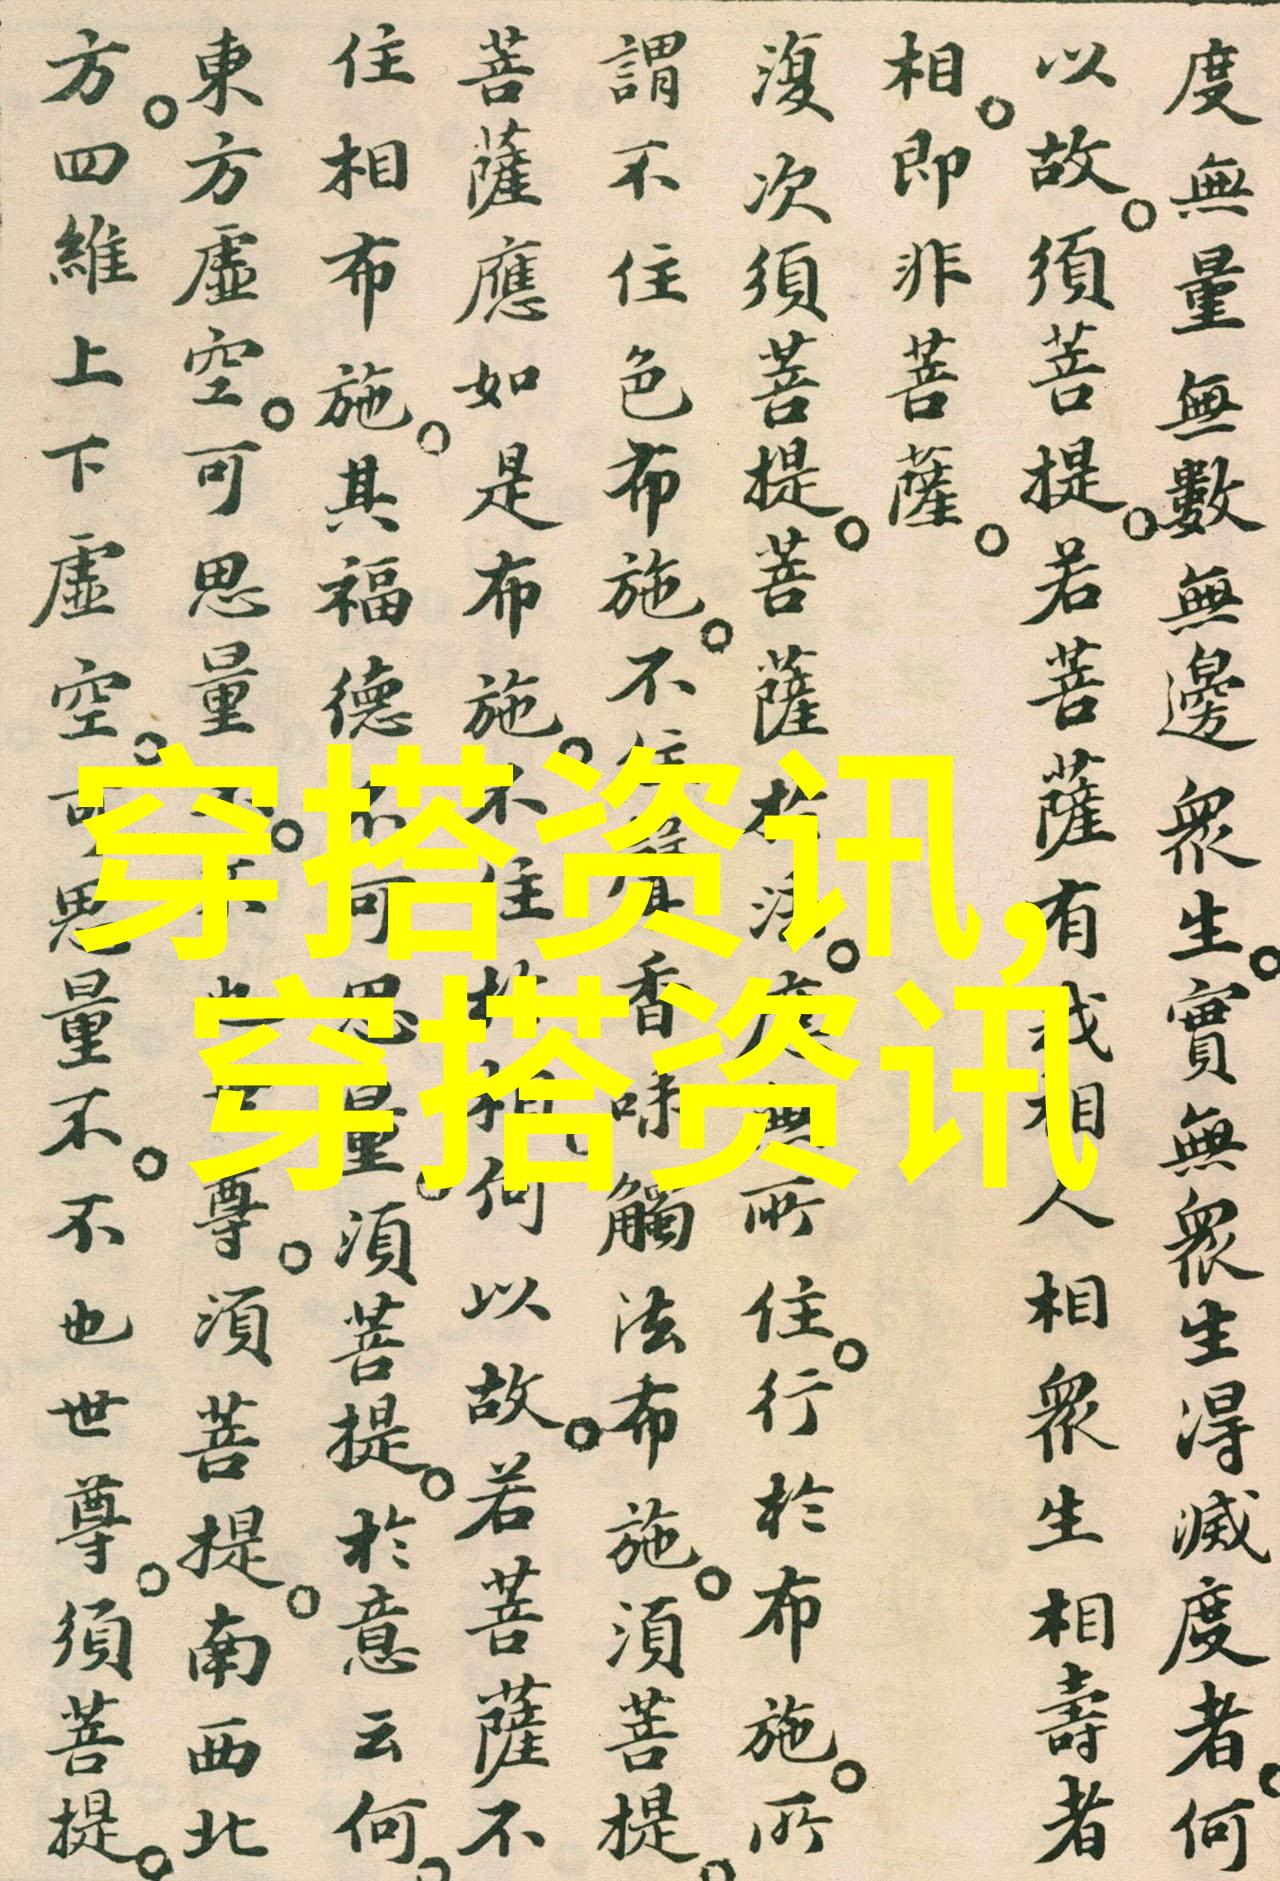 度無量無數無邊衆生。實無衆生得滅度者。何
以故。須菩提。若菩薩有我相人相衆生相壽者
相。即非菩薩。
復次須菩提。菩薩於法。應無所住。行於布施。所
謂不住色布施。不住聲香味觸法布施。須菩提。
菩薩應如是布施。不住於相。何以故。若菩薩不
住相布施。其福德不可思量。須菩提。於意云何。
東方虛空。可思量不。不也世尊。須菩提。南西北
方。四維上下虛空。可思量不。不也世尊。須菩提。
穿搭资讯,
穿搭资讯